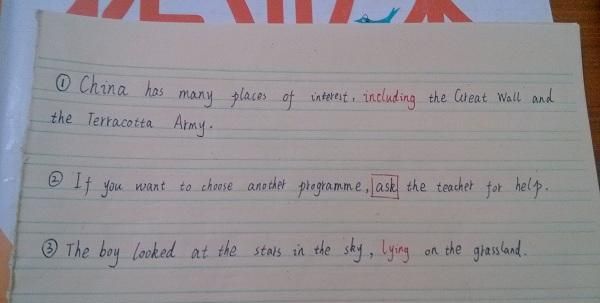 ① China has many places of interest, including the Great Wall and
the Terracotta Army.
② If you want to choose another programme, ask the teacher for help.
③ The boy looked at the stars in the sky, lying on the grassland.